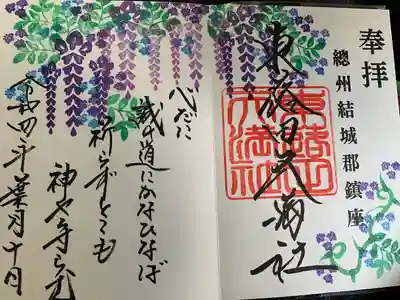 奉拝
總州結城郡鎮座
東蕗田天満社
東蕗田天満社
心だに
誠の道にかなひなば
祈らずとても
神や守らむ
令和四年葉月十日